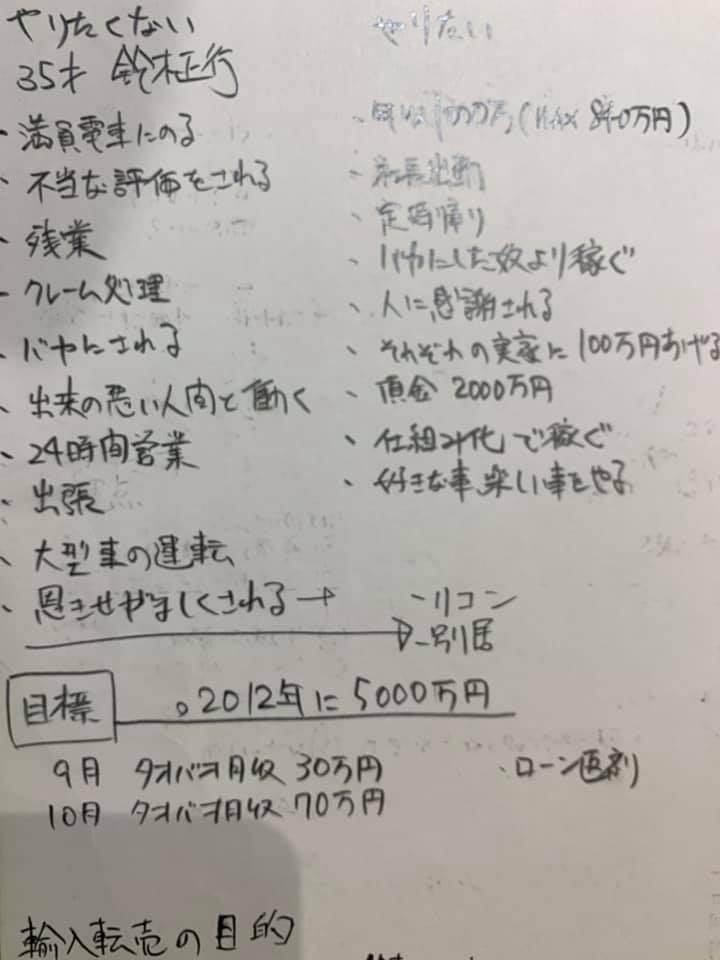 やりたくない
35才 鈴木正行
・満員電車にのる
・不当な評価をされる
・残業
・クレーム処理
・バカにされる
・出来の悪い人間と働く
・24時間営業
・出張
・大型車の運転
・恩きせがましくされる→
やりたい
・年収1000万(MAX 840万円)
・社長出勤
・定時帰り
・バカにした奴より稼ぐ
・人に感謝される
・それぞれの実家に100万円あげる
・頭金 2000万円
・仕組み化で稼ぐ
・好きな事、楽しい事をやる
-リコン
-別居
目標 。2012年に5000万円
9月 タオバオ月収 30万円 ・ローン
10月 タオバオ月収 70万円
輸入転売の目的